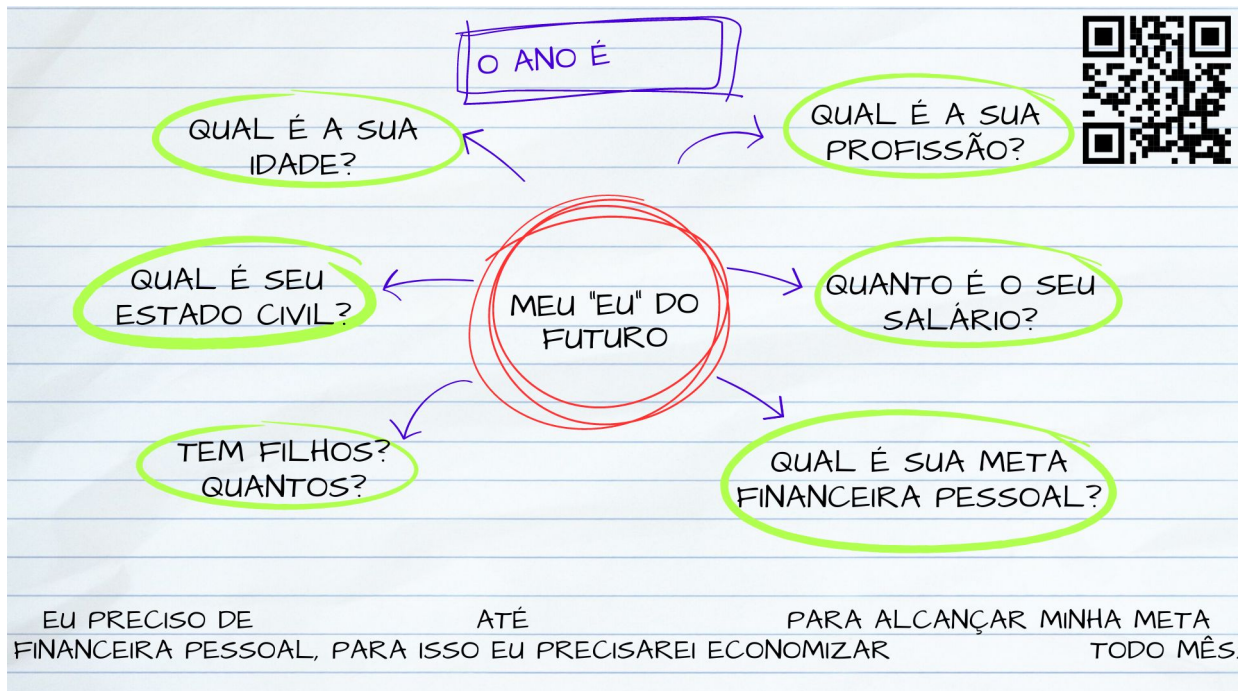 O ANO É
QUAL É A SUA
IDADE?
QUAL É A SUA
PROFISSÃO?
QUAL É SEU
ESTADO CIVIL?
MEU "EU" DO
FUTURO
QUANTO É O SEU
SALÁRIO?
TEM FILHOS?
QUANTOS?
QUAL É SUA META
FINANCEIRA PESSOAL?
EU PRECISO DE ATÉ PARA ALCANÇAR MINHA META
FINANCEIRA PESSOAL, PARA ISSO EU PRECISAREI ECONOMIZAR TODO MÊS.